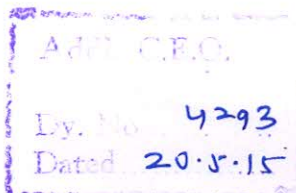 Addl. C.E.O.
Dy. No 4293
Dated 20.5.15